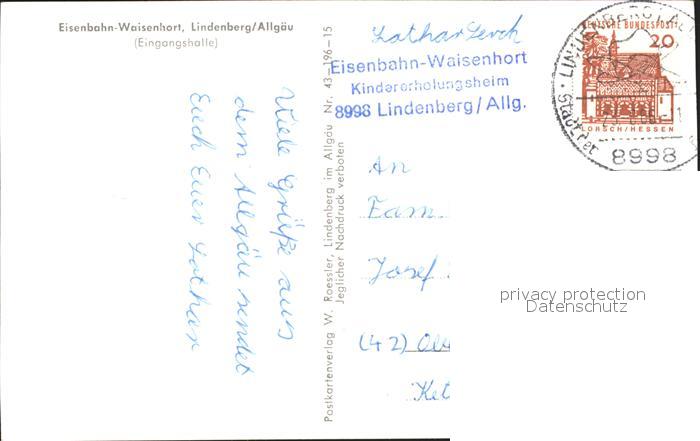 Eisenbahn-Waisenhort, Lindenberg/Allgäu
(Eingangshalle)
Viele Grüße aus
dem Allgäu sendet
Euch Euer Lothar
Postkartenverlag W. Roessler, Lindenberg im Allgäu Nr. 43-196-15
Jeglicher Nachdruck verboten
Lothar Lerch
Eisenbahn-Waisenhort
Kindererholungsheim
8998 Lindenberg/Allg.
DEUTSCHE BUNDESPOST
20
LORSCH/HESSEN
8998
An
Fam.
Josef
(42)
privacy protection
Datenschutz